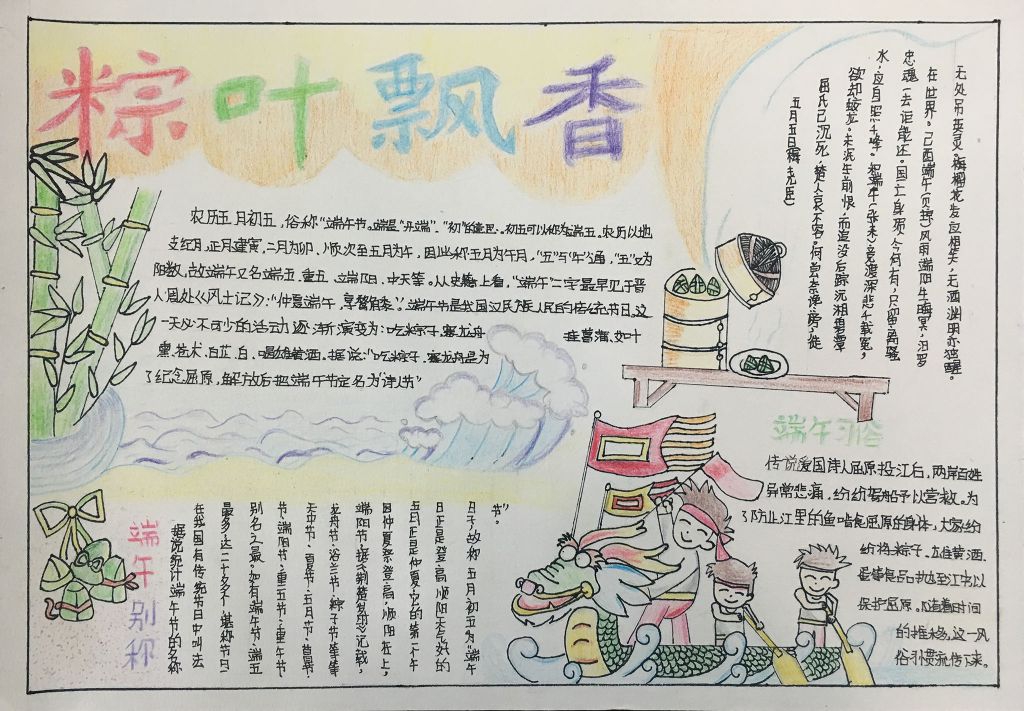 粽叶飘香
农历五月初五，俗称“端午节”。端是“开端”、“初”的意思。初五可以称为端五。农历以地
支纪月，正月建寅，二月为卯，顺次至五月为午，因此称五月为午月，“五”与“午”通，“五”又为
阳数，故端午又名端五、重五、端阳、中天等。从史籍上看，“端午”二字最早见于晋
人周处《风土记》：“仲夏端午，烹鹜角黍”。端午节是我国汉民族人民的传统节日。这
一天必不可少的活动逐渐演变为：吃粽子，赛龙舟
挂菖蒲、艾叶
薰苍术、白芷，白，喝雄黄酒。据说：“吃粽子，赛龙舟是为
了纪念屈原，解放后把端午节定名为“诗人节”
无处吊英灵，海榴花发应相笑，无酒渊明亦独醒。
在世界。己酉端午(贝琼)风雨端阳生晦冥，汨罗
忠魂(去讵能还。国亡身殒今何有，只留离骚
水，应自照千峰。和端午(张耒)竞渡深悲千载冤，
欲却蛟龙。未泯生前恨，而追没后踪。沉湘碧潭
屈氏已沉死，楚人哀不容。何尝奈谗谤，徒
五月五日(梅尧臣)
端午习俗
传说爱国诗人屈原投江后，两岸百姓
异常悲痛，纷纷驾船予以营救。为
了防止江里的鱼啃食屈原的身体，大家纷
纷将粽子、雄黄酒、
蛋等食品抛至江中以
保护屈原。随着时间
的推移，这一风
俗习惯流传下来。
端午别称
据说统计端午节的名称
在我国有传统节日中叫法
最多，达二十多个，堪称节日
别名之最。如有端午节、端五
节、端阳节、重五节、重午节
天中节、夏节、五月节、菖节
龙舟节、浴兰节、粽子节等等
端阳节：据《荆楚岁时记》记载，
因仲夏登高，顺阳在上，
五月正是仲夏，它的第一个午
日正是登高顺阳天气好的
日子，故称五月初五为“端午
节”。